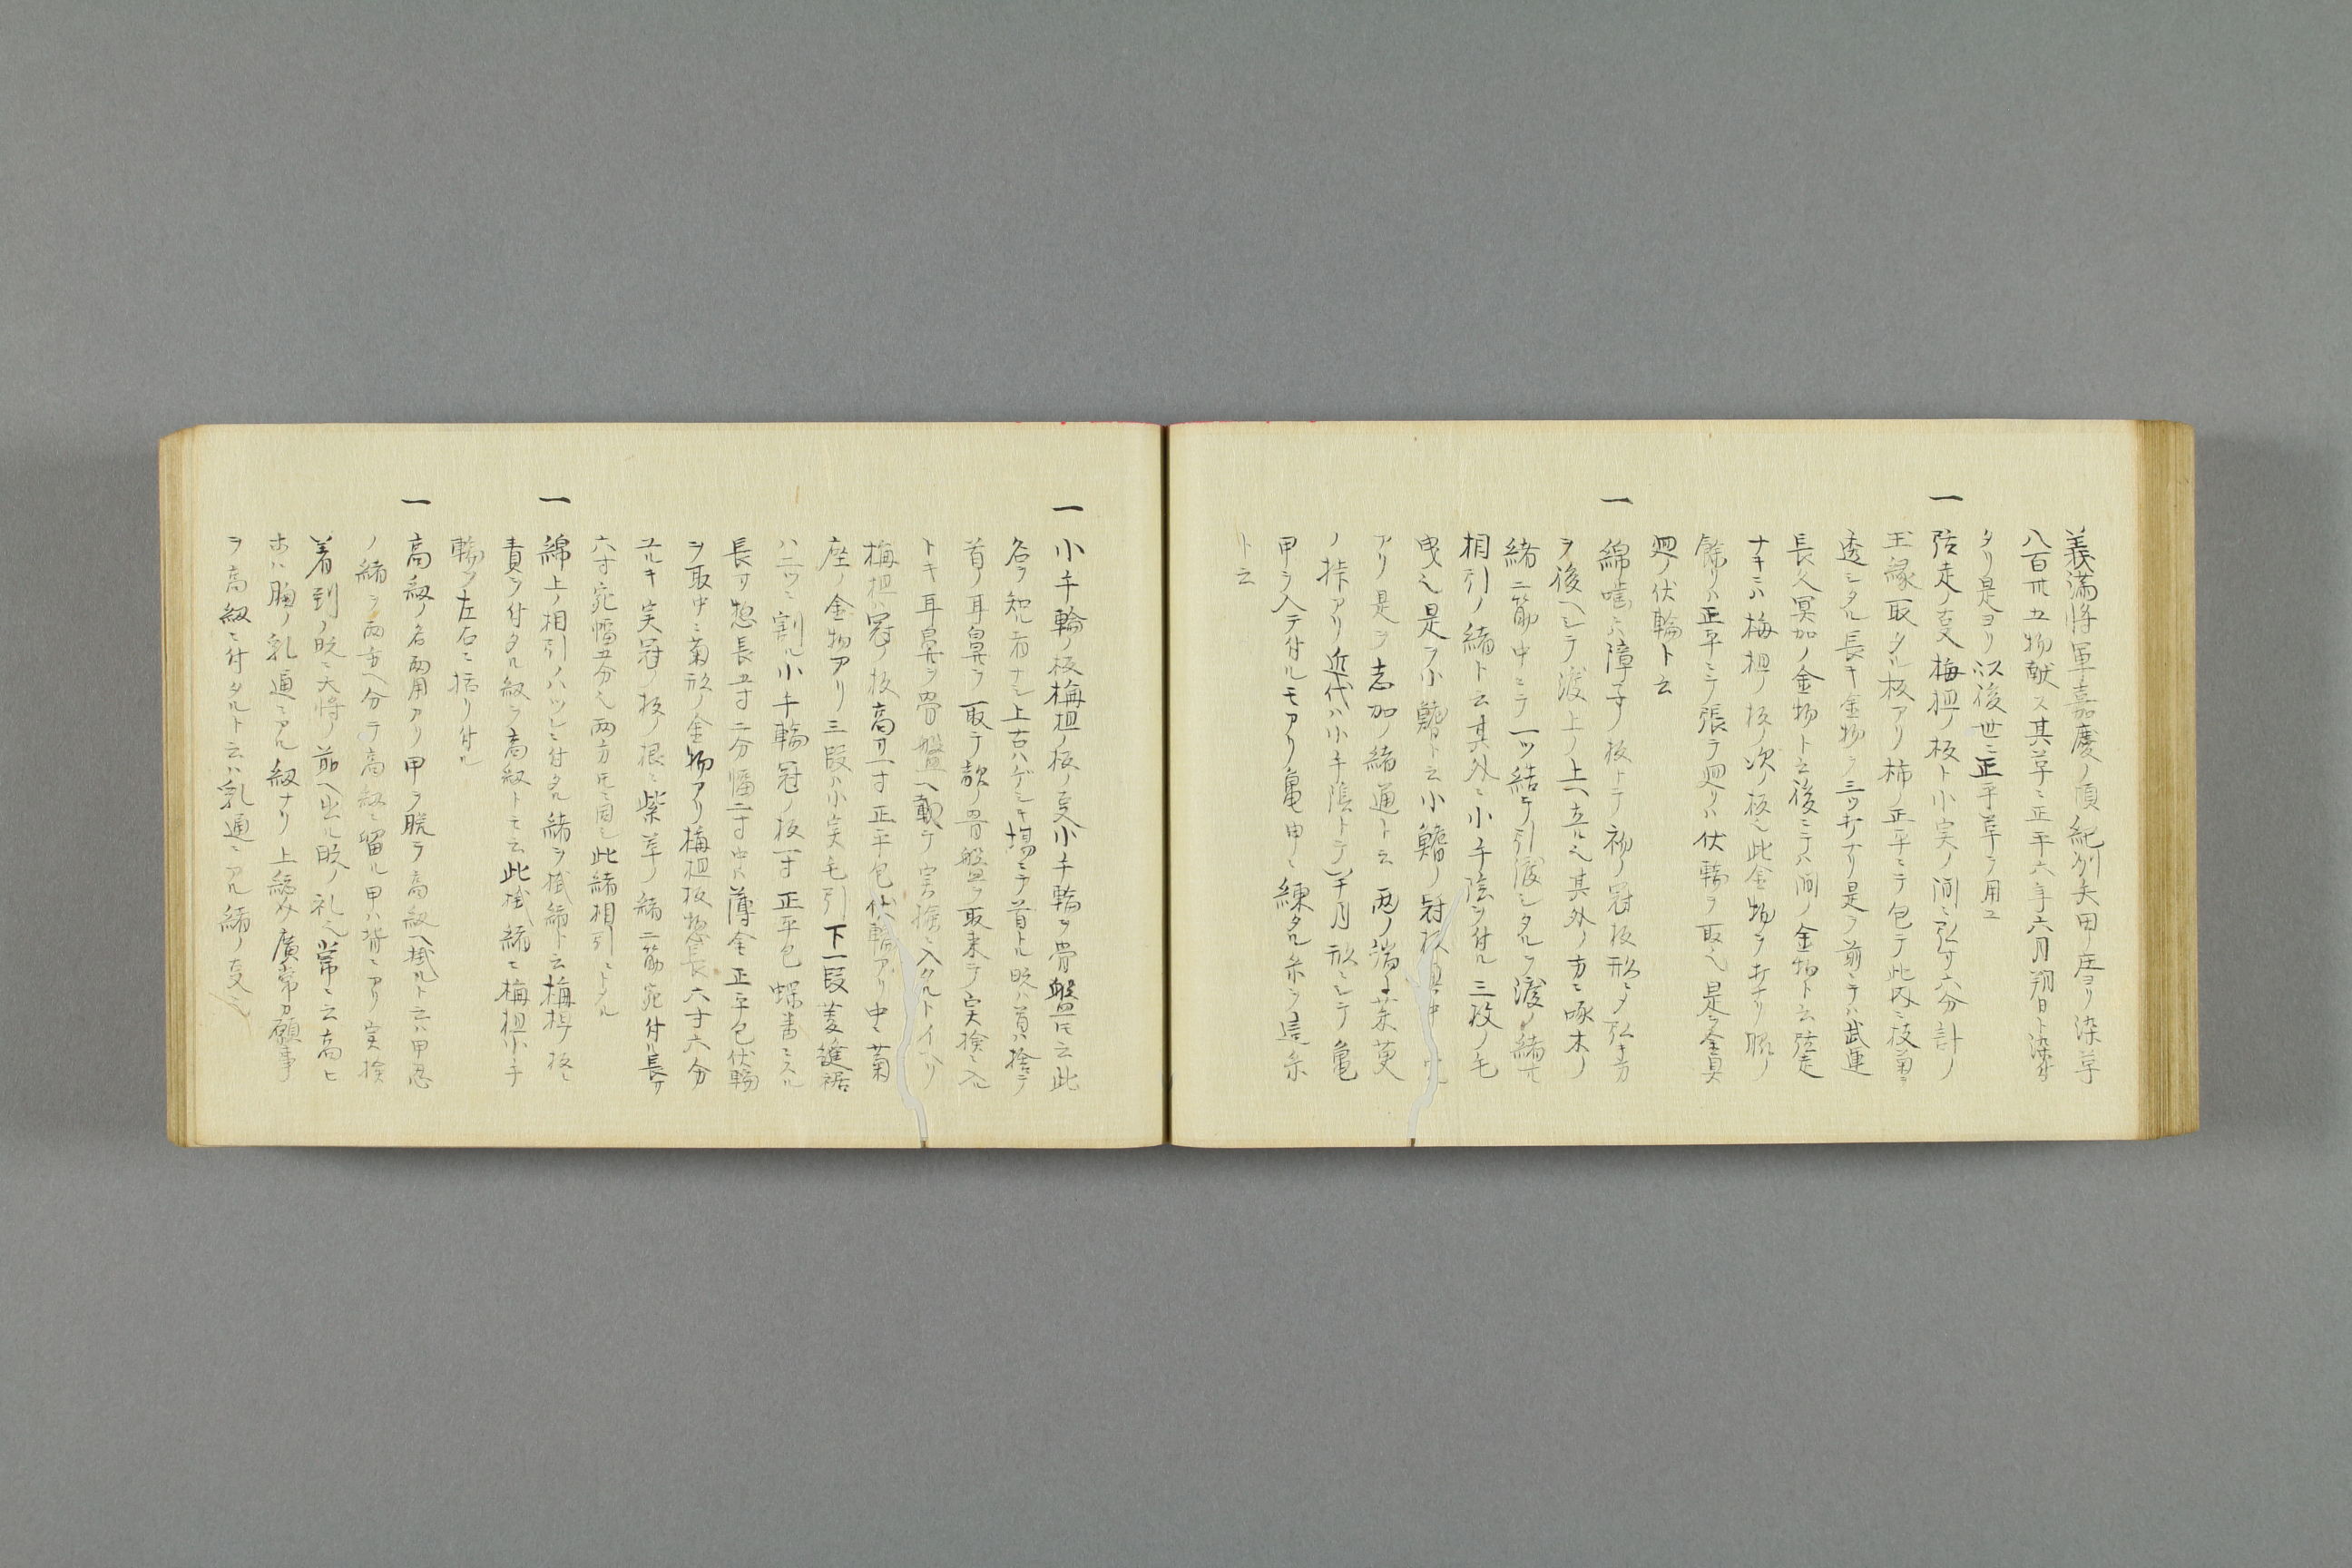 義満将軍嘉慶ノ頃紀州矢田ノ庄ヨリ染革
八百丗五物献ス其革ニ正平六年六月朔日ト染
タリ是ヨリ以後世ニ正平革ヲ用ユ
一 弦走ノ㕝梅担ノ板ト小実ノ間ニ弘サ六分計ノ
玉縁取タル板アリ柿ノ正平ニテ包テ此内ニ枝菊ニ
透シタル長キ金物ヲ三ツ打ナリ是ヲ前ニテハ武運
長久冥加ノ金物ト云後ニテハ間ノ金物ト云弦走
ナキニハ梅担ノ板ノ次ノ板ニ此金物ヲ打ナリ脇ノ
餘リハ正平ニテ張テ廻リハ伏輪ヲ取也是ヲ金具
廻ノ伏輪ト云
一 綿噛ニ障子ノ板トテ初ノ冠板形ニメ弘キ方
ヲ後ヘシテ渡上ノ上ヘ立ル也其外ノ方ニ啄木ノ
緒二筋中ニテ一ツ結テ引渡シタルヲ渡ノ緒
相引ノ緒ト云其外ニ小手陰ヲ付ル三枚ノ毛
曳也是ヲ小鰭ト云小鰭ノ冠板真中
アリ是ヲ志加ノ緒通ト云両ノ端ニ茱萸
ノ挊アリ近代ハ小手陰トテ半月形ニシテ亀
甲ヲ入テ付ルモアリ亀甲ニ練タル糸ヲ這糸
ト云
一 小手輪ノ板梅担ノ板ノ㕝小手輪ヲ骨盤トモ云此
名ヲ知ル者ナシ上古ハゲシキ場ニテ首トル時ハ首ハ捨テ
首ノ耳鼻ヲ取テ敵ノ骨盤ヲ取来テ実捡ニ入ル
トキ耳鼻ヲ骨盤ヘ載テ実捡ニ入タルトイヘリ
梅担ハ冠ノ板高サ一寸正平包伏輪アリ中ニ菊
座ノ金物アリ三段ハ小実毛引下一段菱縫裾
ハニツニ割ル小手輪冠ノ板一寸正平包蝶番ニスル
長サ惣長五寸二分幅二寸中ハ薄金正平包伏輪
ヲ取中ニ菊形ノ金物アリ梅担板惣長六寸六分
五ルキ実冠ノ板ノ根ニ紫革ノ緒二筋宛付ル長サ
六寸宛幅五分也両方トモニ同シ此緒相引ニトル
一 綿上ノ相引ノハツシニ付タル緒ヲ掛緒ト云梅担ノ板ニ
責ヲ付タル紐ヲ高紐トモ云此掛緒ニ梅担小手
輪ヲ左右ニ括リ付ル
一 高紐ノ名両用アリ甲ヲ脱テ高紐ヘ掛ルト云ハ甲忍
ノ緒ヲ両方ヘ分テ高紐ニ留ル甲ハ背ニアリ実捡
着到ノ時ニ大将ノ前ヘ出ル時ノ礼也常ニ云高ヒ
ホハ胸ノ乳通ニアル紐ナリ上総介廣常カ願事
ヲ高紐ニ付タルト云ハ乳通ニアル緒ノ㕝也